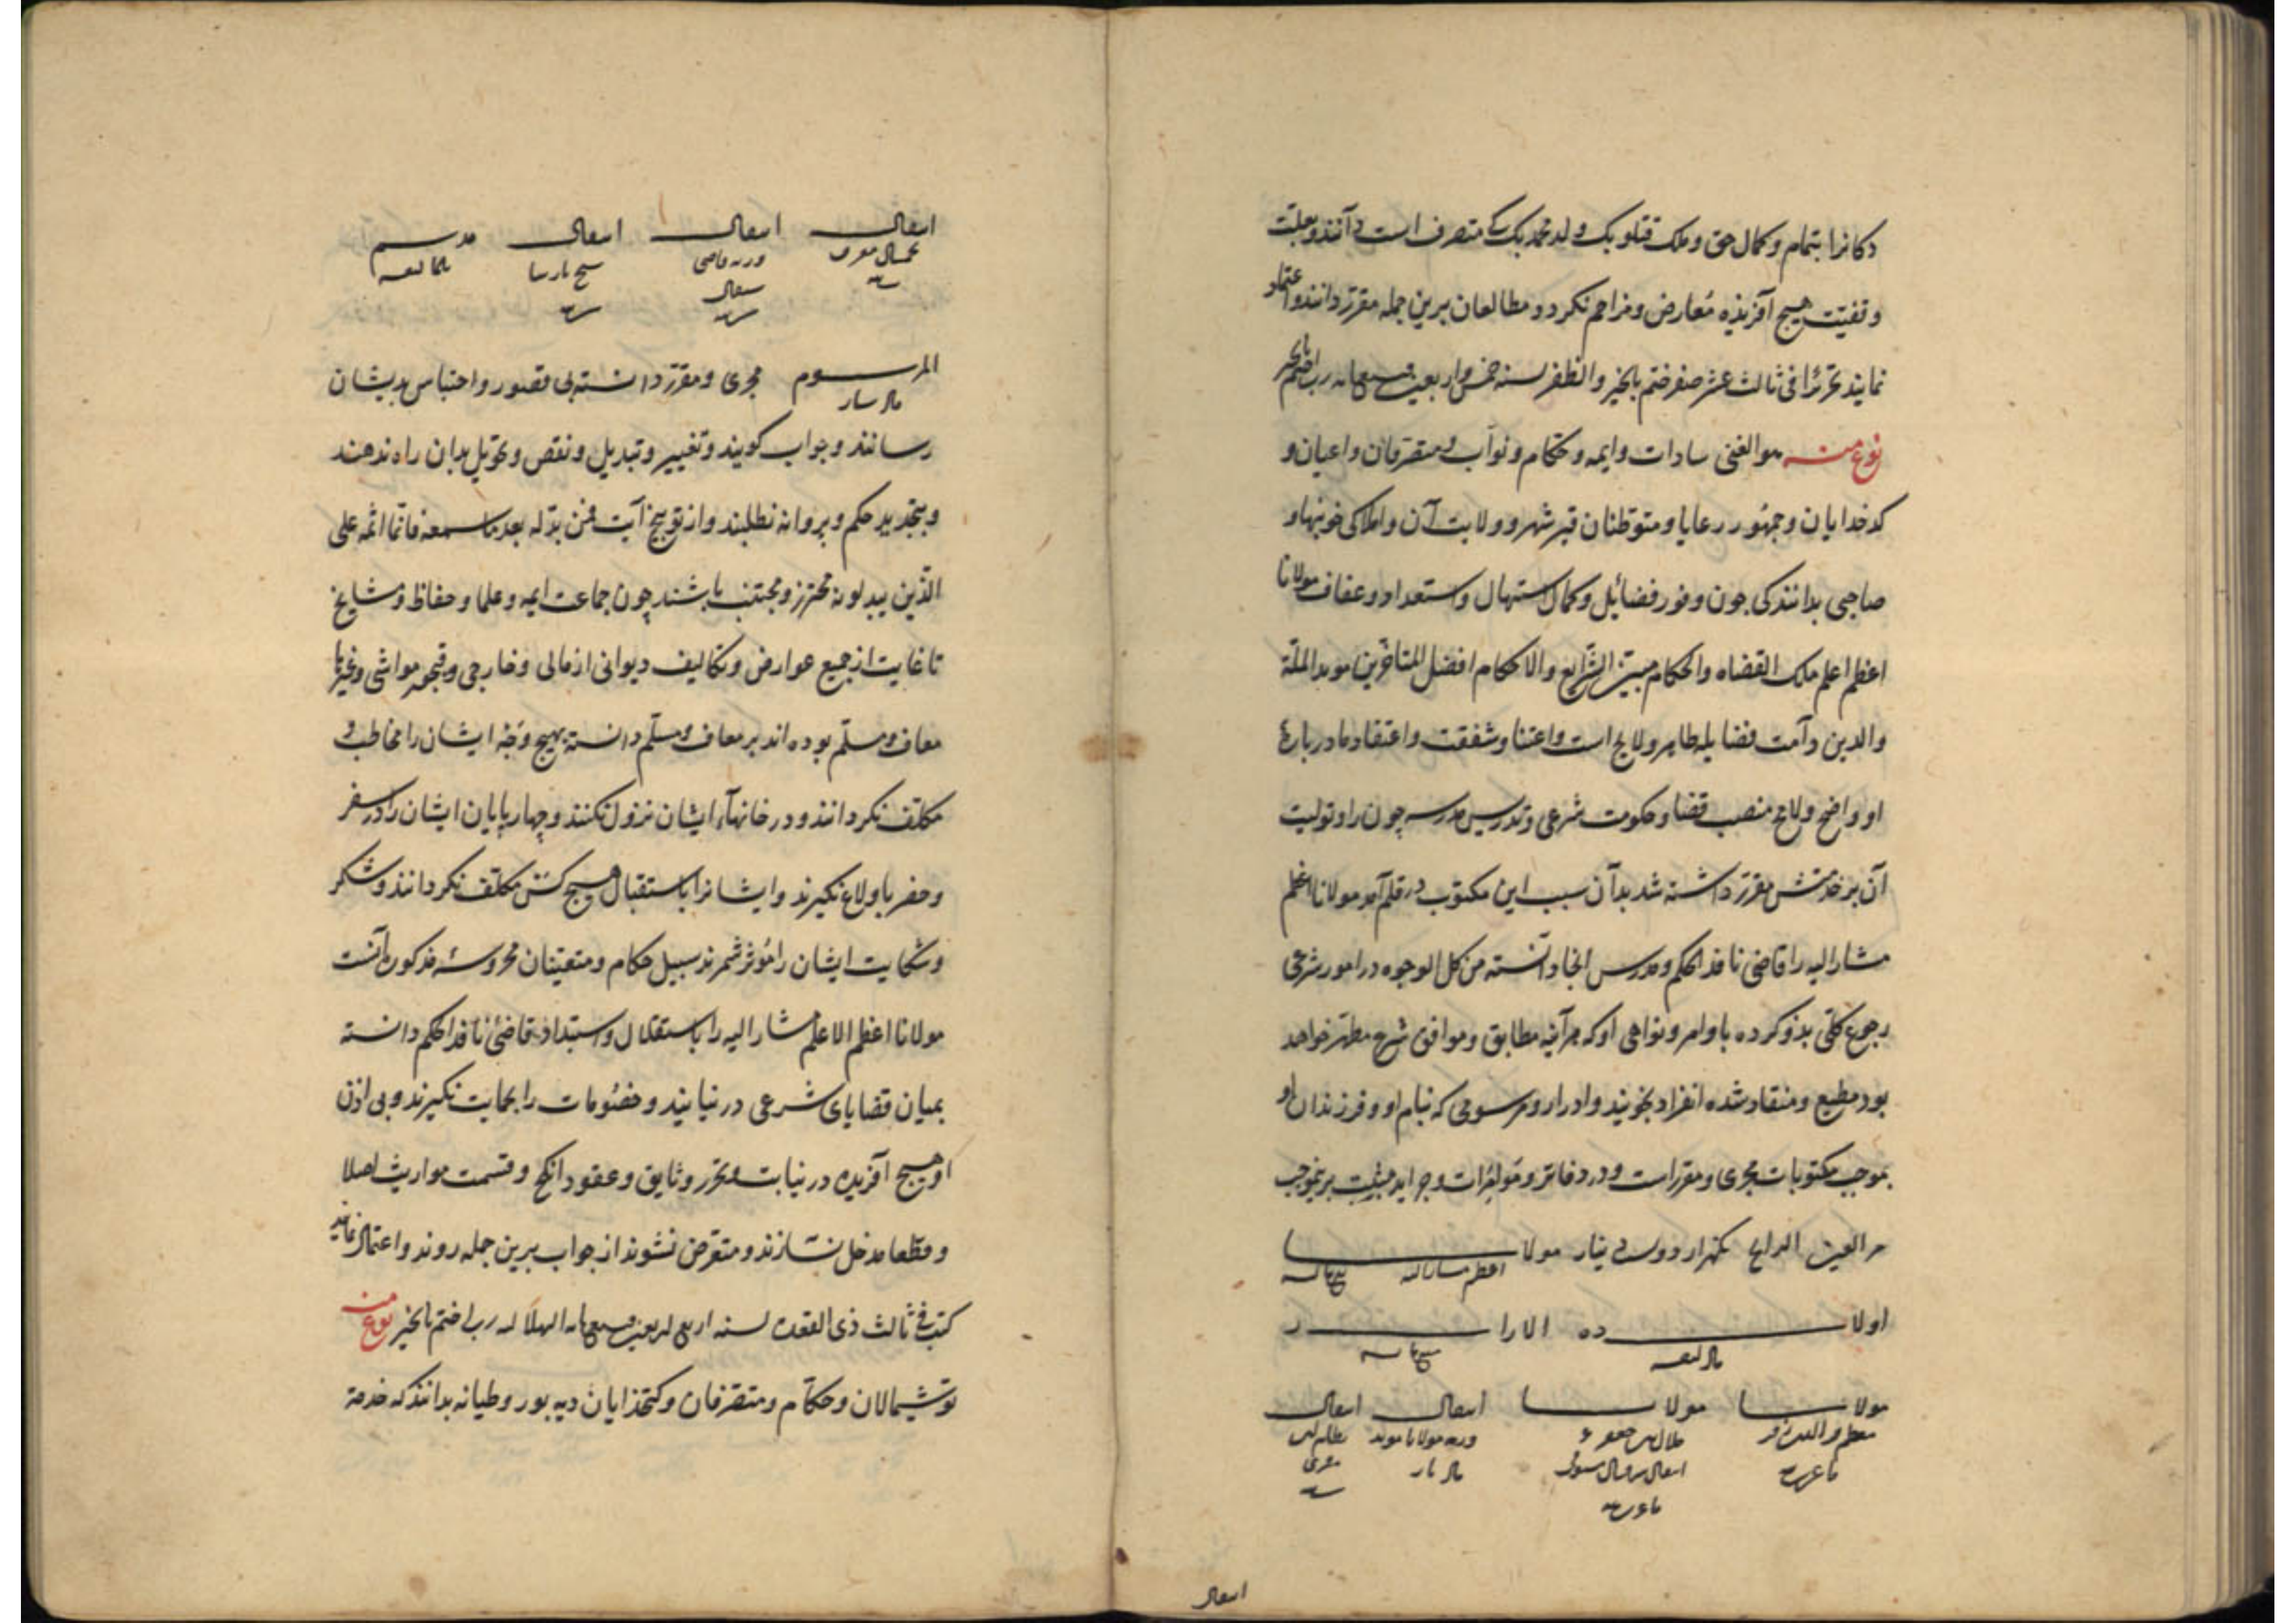 دکانرا بتمام و کمال حق و ملک قتلو بک ولد محمد بک کی متصرف است دانند و بعلت
وقفیت هیچ آفریذه معارض و مزاحم نکردد و مطالعان برین جمله مقرر دانند و اعتماد
نمایند تحریرا فی ثالث عشر صفر ختم بالخیر و الظفر لسنه خمس و اربعین و سبعمایه رب اختم بالخیر
نوع منه هو الغنی سادات و ایمه و حکام و نواب و متصرفان و اعیان و
کدخدایان و جمهور رعایا و متوطنان شهر و ولایت آن و املاکی خوبنهاد
صاحبی بدانند کی چون وفور فضایل و کمال استهال و استعداد و عفاف مولانا
اعظم اعلم ملک القضاه و الحکام مبین الشرایع و الاحکام افضل المتاخرین موید الملة
و الدین دامت فضایله ظاهر و لایح است و اعتنا و شفقت و اعتقاد ما دربارهٔ
او واضح و لایح منصب قضا و حکومت شرعی و تدریس مدرسه چون را و تولیت
آن بر خدمتش مقرر داشته شد بدآن سبب این مکتوب در قلم آمد مولانا اعظم
مشار الیه را قاضی نافذ الحکم و مدرس انجا دانسته من کل الوجوه در امور شرعی
رجوع کلی بذو کرده باوامر و نواهی او که هرآینه مطابق و موافق شرع مطهر خواهد
بود مطیع و منقاد شده انفراد نجویند و ادرار و مرسومی که بنام او و فرزندان او
بموجب مکتوبات مجری و مقررست و در دفاتر و مؤامرات و جراید مثبت برینموجب
العین الرایج یکهزار دویست دینار مولانا
اعظم مشار الیه
اولاده الادرار
مولانا مولانا اسعال اسعال
ورثه مولانا موید
اسعال
اسعال اسعال اسعال مدرسه
ورثه قاضی
المرسوم مجری و مقرر دانسته بی قصور و احتباس بدیشان
رسانند و جواب کویند و تغییر و تبدیل و نقص و تحویل بدان راه ندهند
و بتجدید حکم و پروانه نطلبند و از توبیخ آیت فمن بدله بعد ما سمعه فانما اثمه علی
الذین یبدلونه محترز و مجتنب باشند چون جماعت ایمه و علما و حفاظ و مشایخ
تا غایت از جمیع عوارض و تکالیف دیوانی از مالی و خارجی و قبجور مواشی و غیرها
معاف و مسلم بوده اند بر معاف و مسلم دانسته بهیچ وجه ایشان را مخاطب و
مکلف نکردانند و در خانهاء ایشان نزول نکنند و چهارپایان ایشان را در سفر
و حضر باولاغ نکیرند و ایشانرا باستقبال هیچ کس مکلف نکردانند و شکر
و شکایت ایشان را مؤثر شمرند سبیل حکام و متعینان محروسهٔ مذکوره آنست
مولانا اعظم الاعلم مشار الیه را باستقلال و استبداد قاضیٔ نافذ الحکم دانسته
بمیان قضایای شرعی درنیایند و خصومات را بحمایت نکیرند و بی اذن
او هیچ آفریده در نیابت و تحریر وثایق و عقود انکحه و قسمت مواریث اصلا
و قطعا مدخل نسازند و متعرض نشوند از جواب برین جمله روند و اعتماد نمایند
کتب فی ثالث ذی القعده لسنه اربع اربعین و سبعمایه الهلالیه رب اختم بالخیر نوع منه
توشیمالان و حکام و متصرفان و کتخذایان دیه بور و طیانه بدانند که خدمة